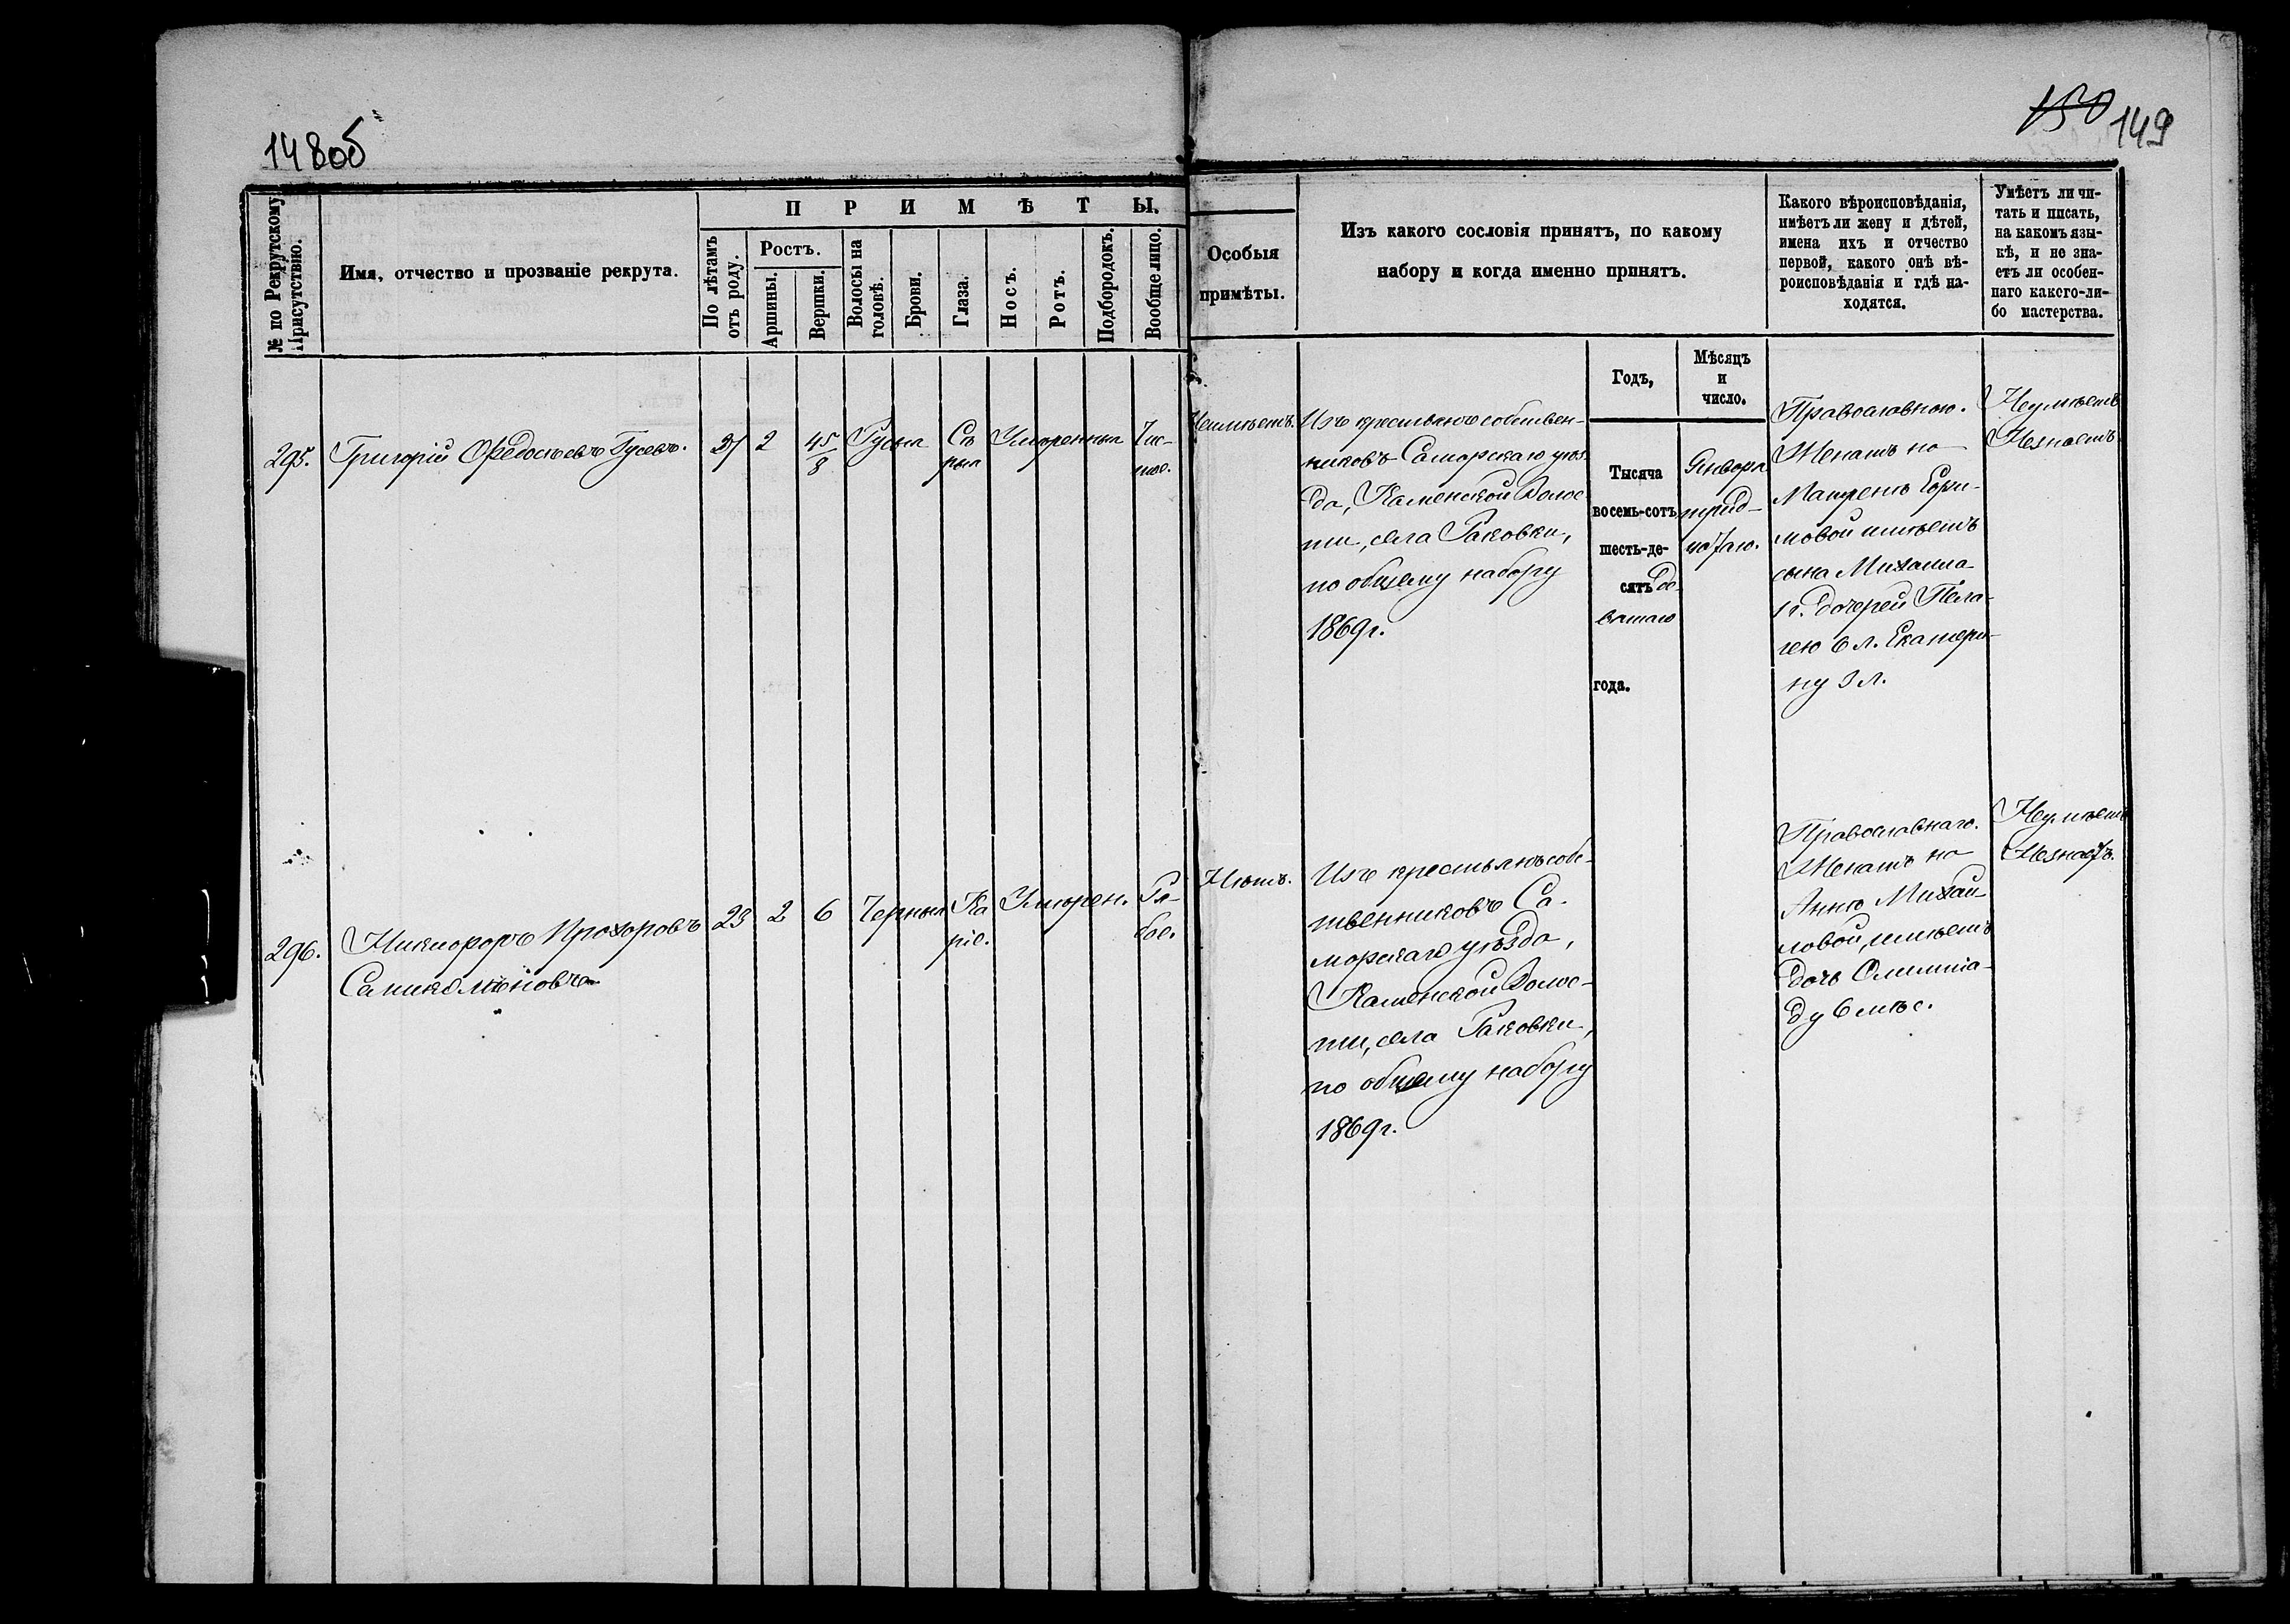 148 об
150 149
№ по Рекрутскому Присутствію.
Имя, отчество и прозваніе рекрута.
ПРИМѢТЫ.
По лѣтамъ отъ роду.
Ростъ.
Аршины.
Вершки.
Волосы на головѣ.
Брови.
Глаза.
Носъ.
Ротъ.
Подбородокъ.
Вообще лицо.
Особыя
примѣты.
Изъ какого сословія принятъ, по какому
набору и когда именно принятъ.
Какого вѣроисповѣданія,
имѣетъ ли жену и дѣтей,
имена ихъ и отчество
первой, какого онѣ вѣ-
роисповѣданія и гдѣ на-
ходятся.
Умѣетъ ли чи-
тать и писать,
на какомъ язы-
кѣ, и не зна-
етъ ли особен-
наго какого-ли-
бо мастерства.
Годъ,
Мѣсяцъ
и
число.
295.
Григорій Ѳедосѣевъ Гусевъ.
2
4 5/8
Русыя
Сѣ
рыя
Умѣренныя
Чис-
тое.
Неимѣетъ.
Изъ крестьянъ собствен-
никовъ Самарскаго уѣз-
да, Каменской Волос
ти, села Раковки,
по общему набору
1869 г.
Тысяча
восемь-сотъ
шесть-де-
сятъ де-
вятаго
года.
Января
трид-
цатаго.
Православнаго.
Женатъ на
Матренѣ Ефи-
мовой имѣетъ
сына Михаила
1 г. дочерей Пела-
гею 6 л. Екатери-
ну 3 л.
Неумѣетъ
Незнаетъ
296.
Никифоръ Прохоровъ
23
2
6
Черныя
Ка
ріе.
Умѣрен.
Ря-
бое.
Нѣтъ.
Изъ крестьянъ собс-
твенниковъ Са-
марскаго уѣзда,
Каменской Волос-
ти, села Раковки,
по общему набору
1869 г.
Православнаго.
Женатъ на
Аннѣ Михай-
ловой, имѣетъ
дочь Олимпіа-
ду 6 мѣс.
Неумѣетъ
Незнаетъ.